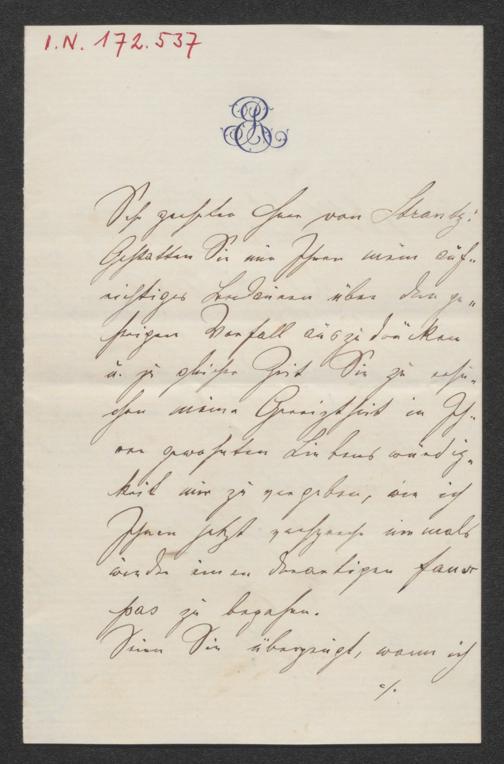 I.N. 172.537
Sehr geehrter Herr von Strantz!
Gestatten Sie mir Ihnen mein auf-
richtiges Bedauern über den ge-
strigen Vorfall auszudrücken
u. zu gleicher Zeit Sie zu ersu-
chen meine Gereiztheit in Ih-
rer gewohnten Liebenswürdig-
keit mir zu vergeben, wie ich
Ihnen jetzt verspreche niemals
wieder einen derartigen faux
pas zu begehen.
Seien Sie überzeugt, wenn ich
./.